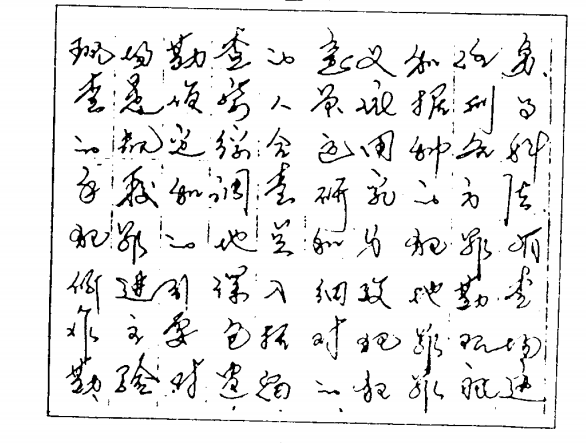 现场勘查的意义和任务
查是侦察人员根据刑事
的规定综合运用种各科
手段和调查研究的方法
犯罪的地和为犯罪有
例进行深入细致地勘查
作主要包括对犯罪现场
勘验对遗留的犯罪痕迹